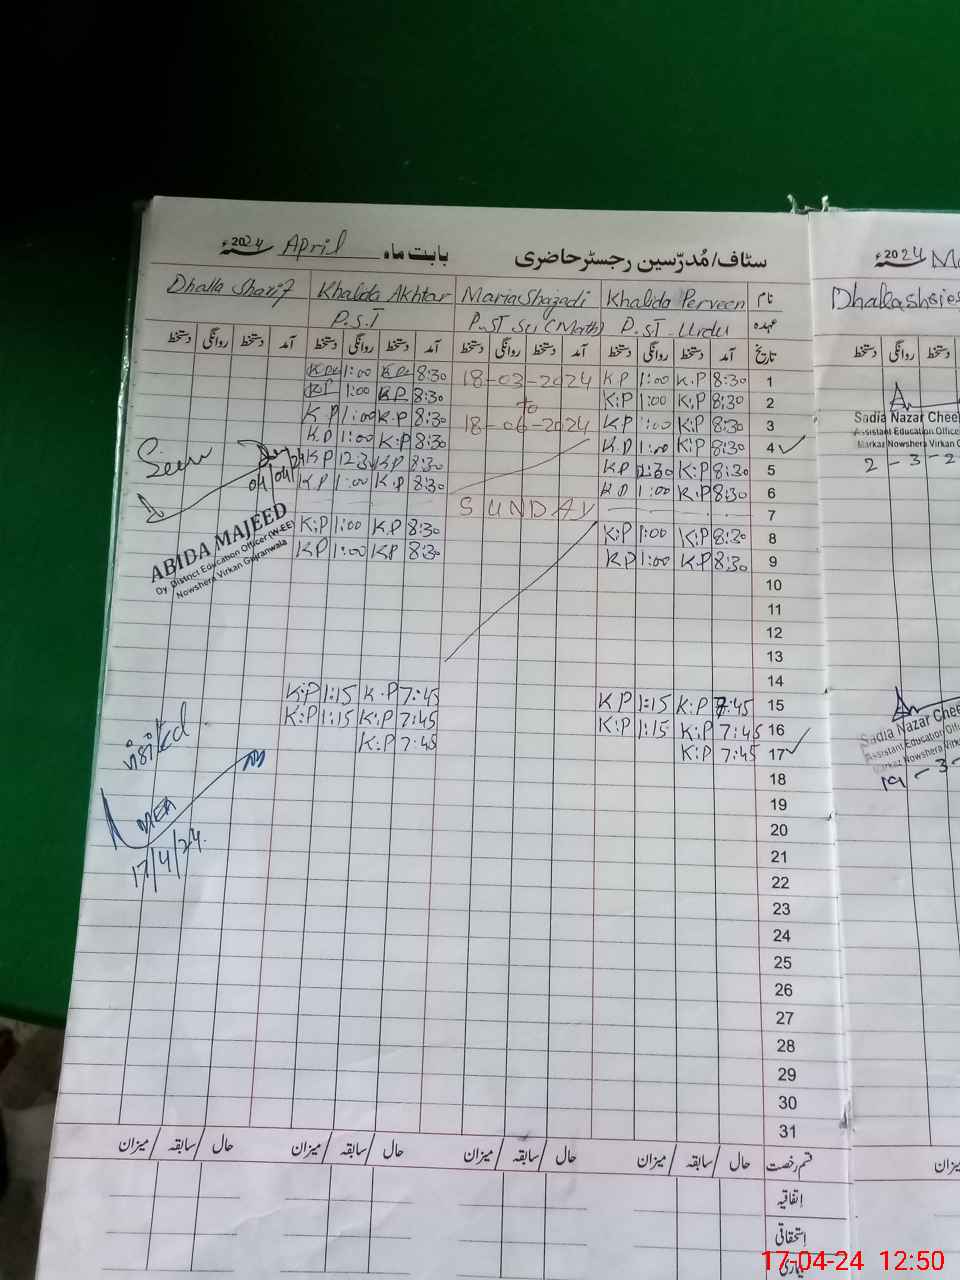 سٹاف/مُدرّسین رجسٹر حاضری بابت ماہ April 2024ء
نام Khalida Perveen Maria Shazadi Khalida Akhtar Dhalla Sharif
عہدہ P.S.T Urdu P.ST Sci (Math) P.S.T
تاریخ آمد دستخط روانگی دستخط آمد دستخط روانگی دستخط آمد دستخط روانگی دستخط آمد دستخط روانگی دستخط
1 8:30 K.P 1:00 K.P 18-03-2024 8:30 1:00
2 8:30 K:P 1:00 K:P to 8:30 K.P 1:00 K.P
3 8:30 K:P 1:00 K.P 18-06-2024 8:30 K.P 1:00 K.P
4 8:30 K:P 1:00 K.P 8:30 K:P 1:00 K.P
5 8:30 K:P 12:30 K.P 8:30 K.P 12:30 K.P
6 8:30 K.P 1:00 K.P 8:30 K.P 1:00 K.P
7 SUNDAY
8 8:30 K:P 1:00 K:P 8:30 K.P 1:00 K:P
9 8:30 K.P 1:00 K.P 8:30 K.P 1:00 K.P
10
11
12
13
14
15 7:45 K:P 1:15 K.P 7:45 K.P 1:15 K:P
16 7:45 K:P 1:15 K:P 7:45 K:P 1:15 K:P
17 7:45 K:P 7:45 K:P
18
19
20
21
22
23
24
25
26
27
28
29
30
31
قسم رخصت حال/سابقہ/میزان حال/سابقہ/میزان حال/سابقہ/میزان حال/سابقہ/میزان
اتفاقیہ
استحقاقی
بیماری
Seen
04/04/24
ABIDA MAJEED
Dy District Education Officer (W-EE)
Nowshera Virkan Gujranwala
visited
MEA
17/4/24.
2024ء
دستخط روانگی دستخط
Sadia Nazar Chee
Assistant Education Office
Markaz Nowshera Virkan
2-3-2
Sadia Nazar Chee
Assistant Education Office
Markaz Nowshera Virkan
19-3-
17-04-24 12:50